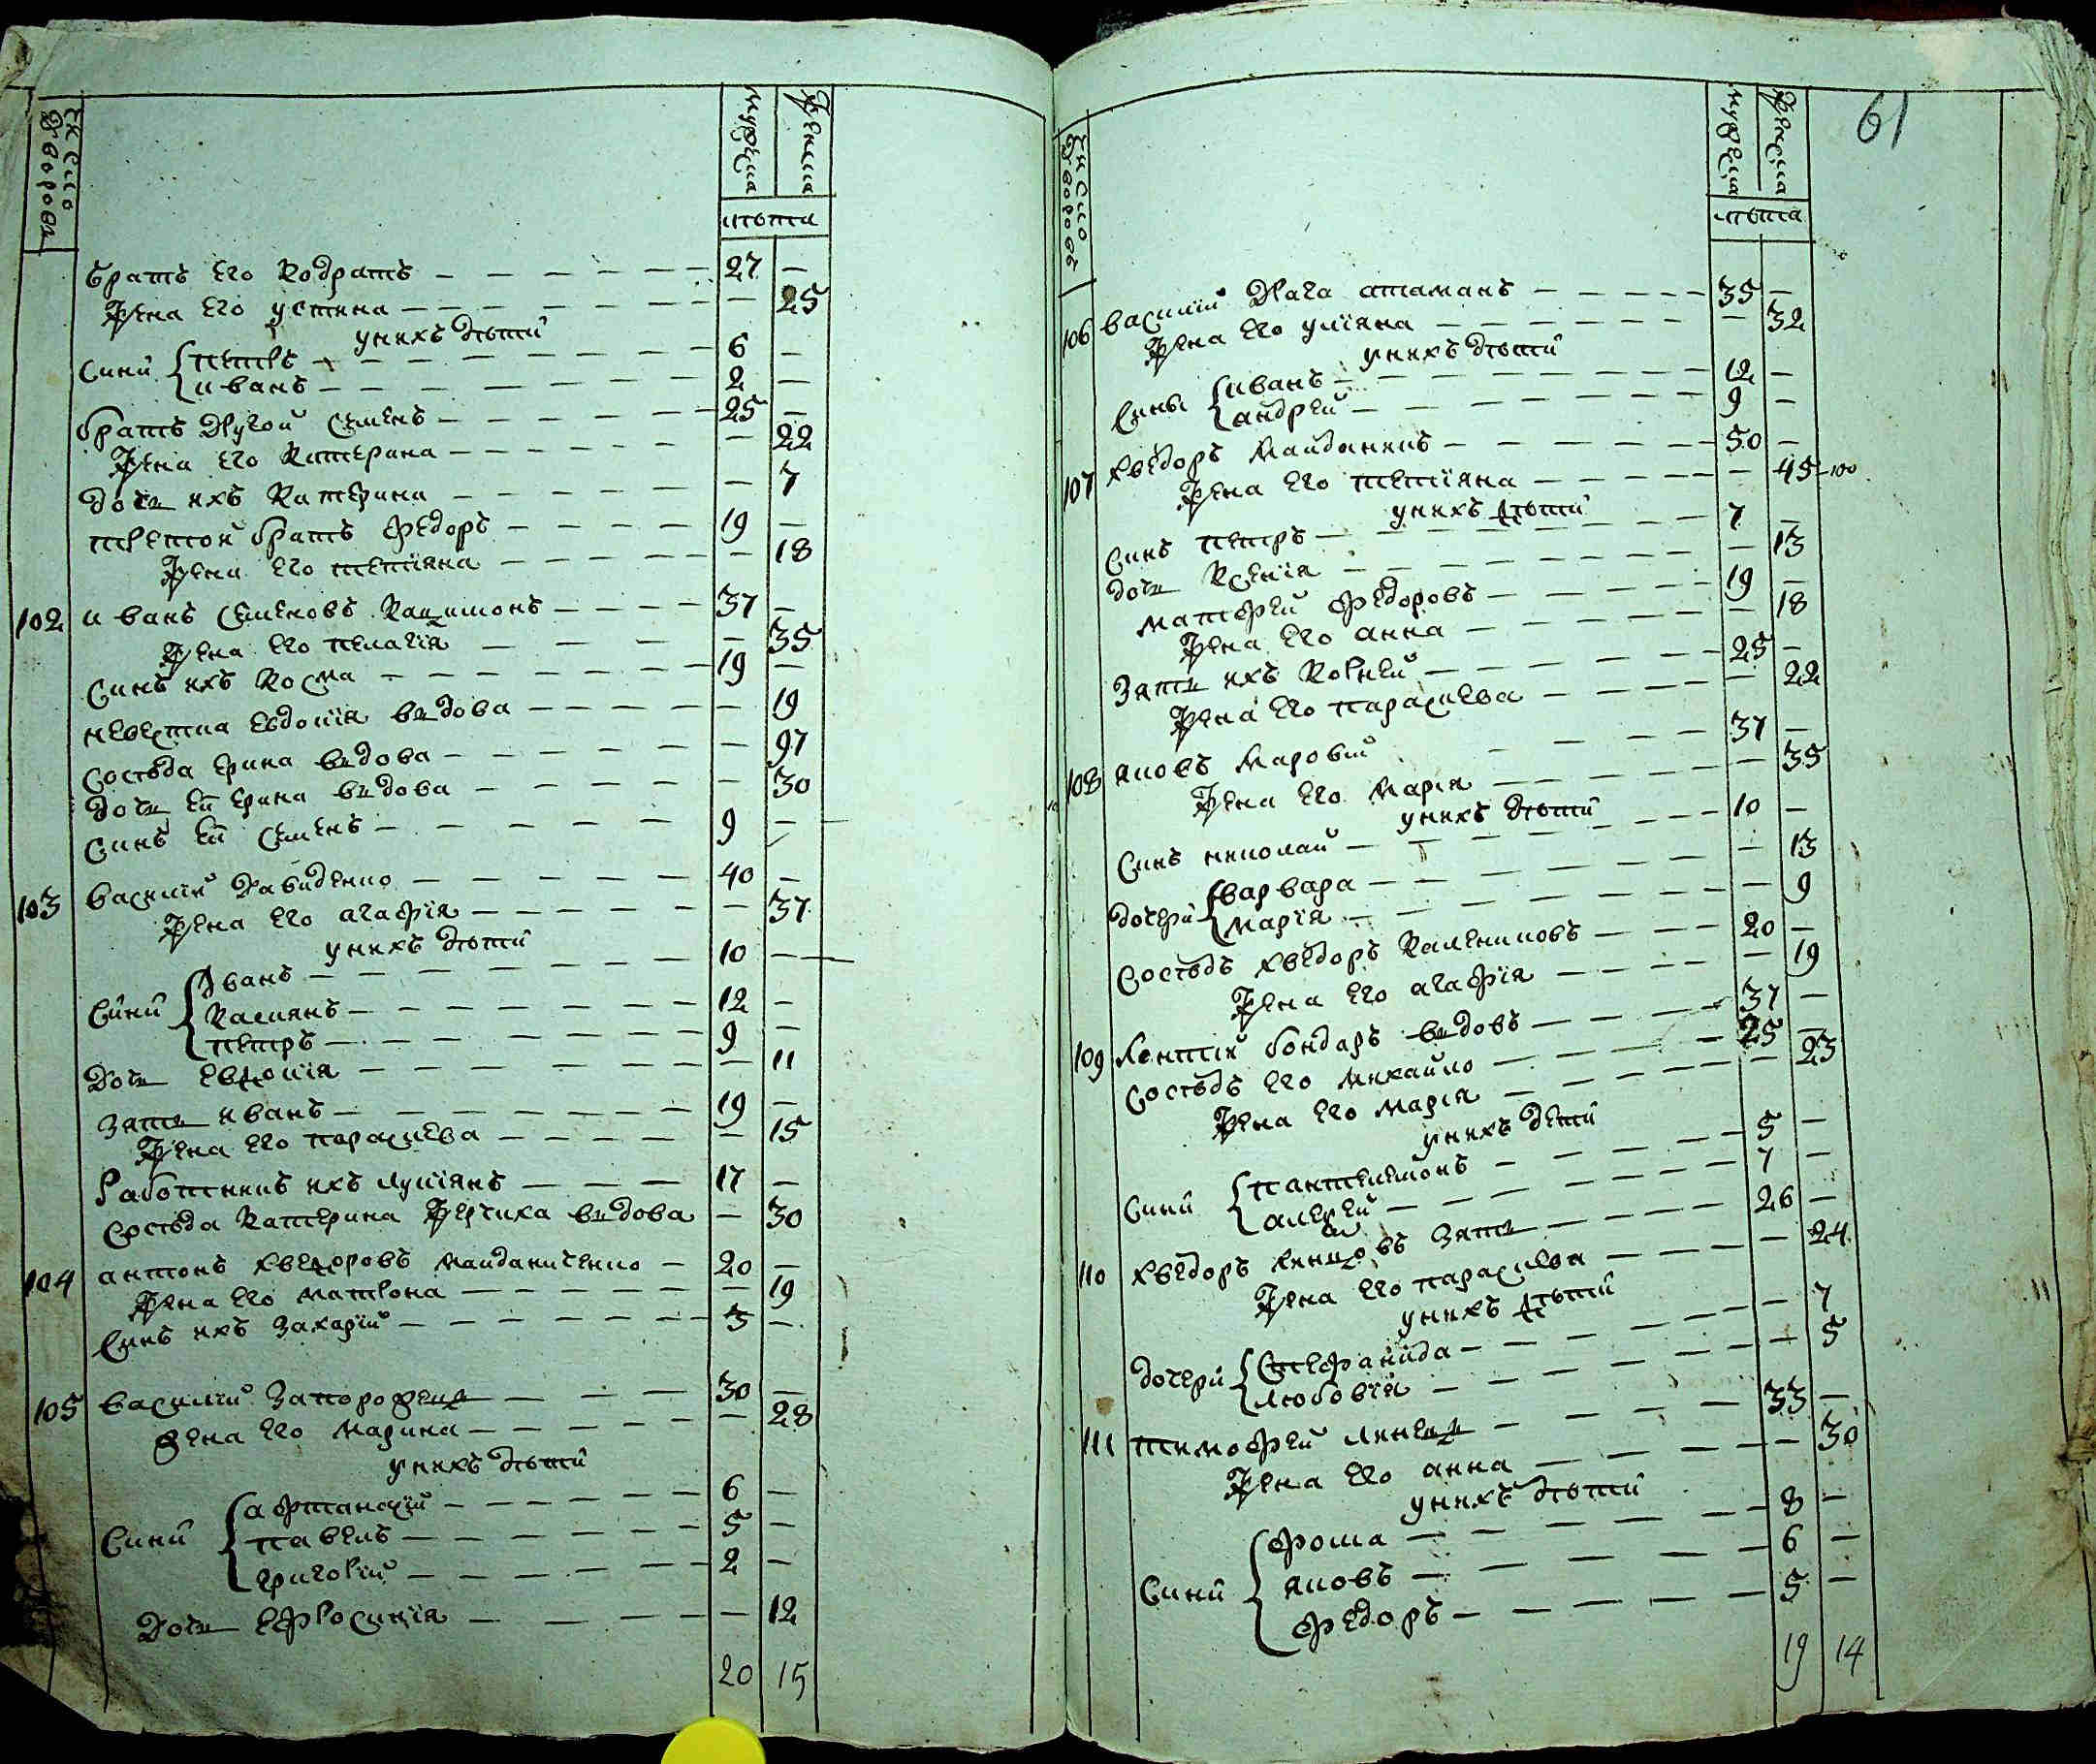 Число дворовъ
мужеска
женска
лѣта
братъ его кодратъ 27 —
жена его устина — 25
у нихъ дѣти
сини { петръ 6 —
иванъ 2 —
братъ другой семенъ 25 —
жена его катерина — 22
дочь ихъ катерина — 7
третой братъ федоръ 19 —
жена его тетіяна — 18
102 иванъ семеновъ 37 —
жена его пелагія — 35
синъ ихъ косма 19 —
невѣстка евдокія вдова — 19
сосѣда ерина вдова — 97
дочь ей ерина вдова — 30
синъ ей семенъ 9 —
103 василій давиденко 40 —
жена его агафія — 37
у нихъ дѣти
сини { иванъ 10 —
касиянъ 12 —
петръ 9 —
дочь евдокія — 11
зять иванъ 19 —
жена его параскева — 15
работникъ ихъ лукіянъ 17 —
сосѣда катерина вдова — 30
104 антонъ хведоровъ майданиченко 20 —
жена его матрона — 19
синъ ихъ захарій 3 —
105 василій запорожецъ 30 —
жена его марина — 28
у нихъ дѣти
сини { афтанасій 6 —
павелъ 5 —
григорій 2 —
дочь ефросинія — 12
20 15
61
Число дворовъ
мужеска
женска
лѣта
106 василій атаманъ 35 —
жена его уліяна — 32
у нихъ дѣти
сины { иванъ 12 —
андрей 9 —
107 хведоръ майданикъ 50 —
жена его тетіяна — 45 100
у нихъ дѣти
синъ петръ 7 —
дочь ксенія — 13
матфей федоровъ 19 —
жена его анна — 18
зять ихъ корней 25 —
жена его параскева — 22
108 яковъ 37 —
жена его марія — 35
у нихъ дѣти
синъ николай 10 —
дочери { варвара — 13
марія — 9
сосѣдъ хведоръ калениковъ 20 —
жена его агафія — 19
109 леонтій бондаръ вдовъ 37 —
сосѣдъ его михайло 25 —
жена его марія — 23
у нихъ дети
сини { пантелемонъ 5 —
алексей 7 —
110 хведоръ зять 26 —
жена его параскева — 24
у нихъ дѣти
дочери { стефанида — 7
любовія — 5
111 тимофей 33 —
жена его анна — 30
у нихъ дѣти
сини { фома 8 —
яковъ 6 —
федоръ 5 —
19 14